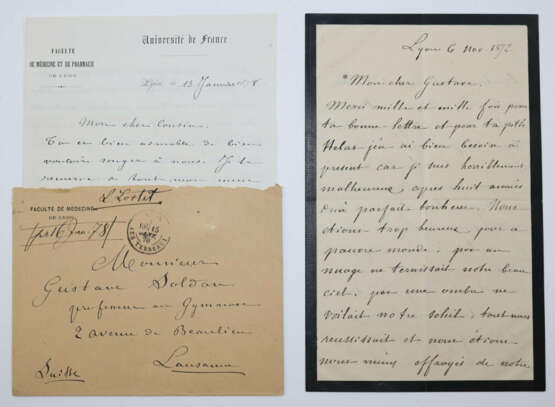 Université de France
FACULTÉ
DE MÉDECINE ET DE PHARMACIE
DE LYON
Lyon, le 13 Janvier 1878
Mon cher Cousin.
Tu es bien aimable de bien
vouloir songer à nous. Je te
remercie de tout mon cœur
L. Lortet
FACULTÉ DE MÉDECINE
DE LYON
Monsieur
Gustave Soldan
professeur au Gymnase
2 avenue de Beaulieu
Lausanne
Suisse
Lyon 6 Nov. 1872
Mon cher Gustave.
Merci mille et mille fois pour
ta bonne lettre et pour ta pitié
Helas j'en ai bien besoin à
present car je suis horriblement
malheureux, apres huit années
d'un parfait bonheur. Nous
étions trop heureux pour ce
pauvre monde. pas un
nuage ne ternissait notre beau
ciel, pas une ombre ne
voilait notre soleil. tout nous
reussissait et nous étions
nous mêmes effrayés de notre